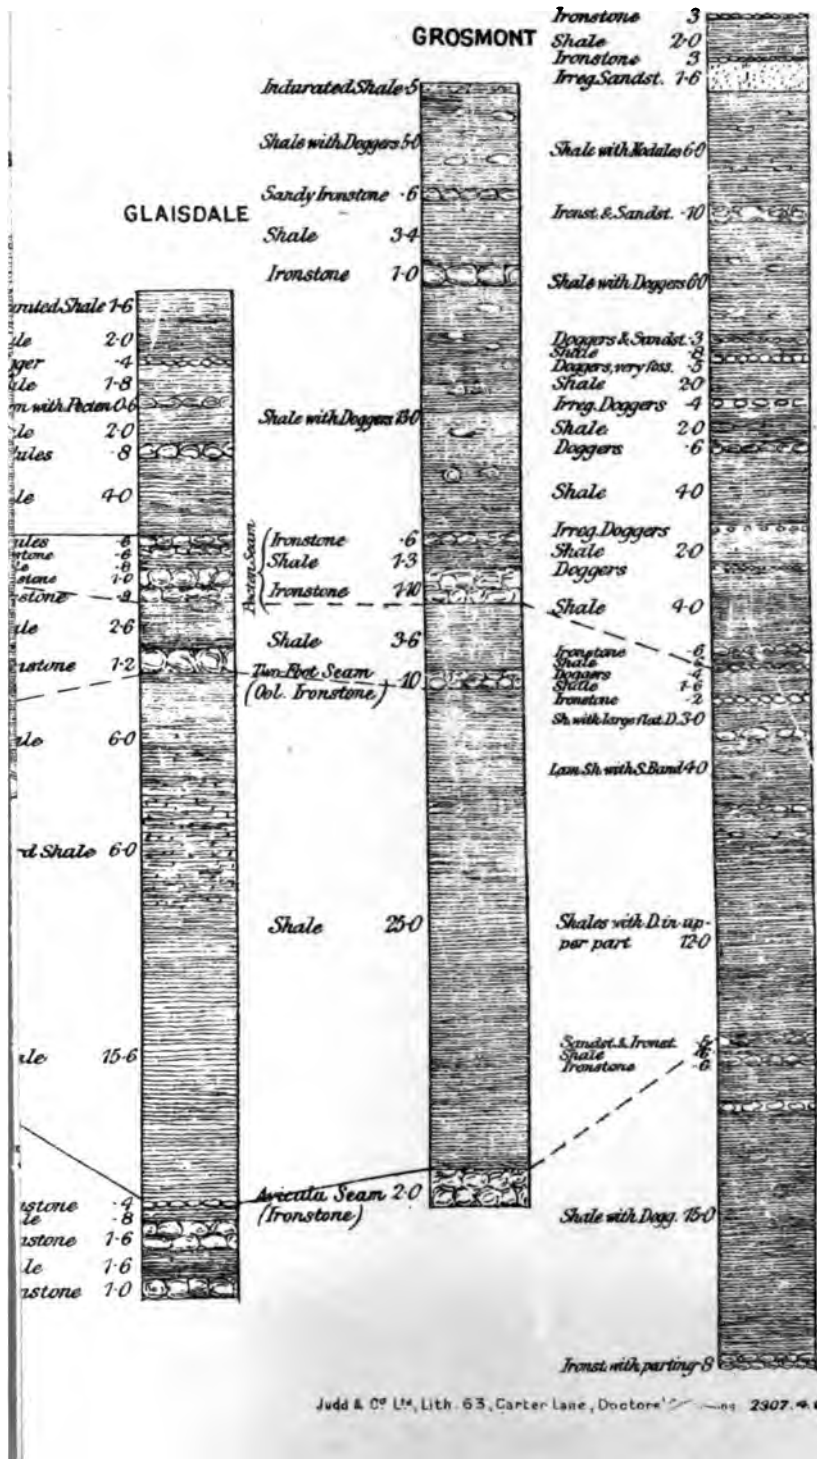 GLAISDALE
rated Shale 1·6
ale 2·0
gger ·4
ale 1·8
n with Pecten 0·6
ale 2·0
dules ·8
ale 4·0
ules ·6
stone ·6
le ·8
stone 1·0
stone ·9
ale 2·6
nstone 1·2
ale 6·0
d Shale 6·0
ale 15·6
nstone ·4
le ·8
nstone 1·6
ale 1·6
nstone 1·0
GROSMONT
Indurated Shale ·5
Shale with Doggers 5·0
Sandy Ironstone ·6
Shale 3·4
Ironstone 1·0
Shale with Doggers 13·0
Pecten Seam
Ironstone ·6
Shale 1·3
Ironstone 1·10
Shale 3·6
Two-Foot Seam
(Ool. Ironstone) ·10
Shale 25·0
Avicula Seam 2·0
(Ironstone)
Ironstone 3
Shale 2·0
Ironstone 3
Irreg. Sandst. 1·6
Shale with Nodules 6·0
Ironst. & Sandst. ·10
Shale with Doggers 6·0
Doggers & Sandst. ·3
Shale ·8
Doggers, very foss. ·5
Shale 2·0
Irreg. Doggers ·4
Shale 2·0
Doggers ·6
Shale 4·0
Irreg. Doggers
Shale 2·0
Doggers
Shale 4·0
Ironstone ·6
Shale
Doggers ·4
Shale 1·6
Ironstone ·2
Sh. with large flat D. 3·0
Lam. Sh. with S. Band 4·0
Shales with D. in up-
per part 12·0
Sandst. & Ironst. ·5
Shale
Ironstone ·6
Shale with Dogg. 15·0
Ironst. with parting ·8
Judd & Co Ltd, Lith. 63, Carter Lane, Doctors' 2907.4.